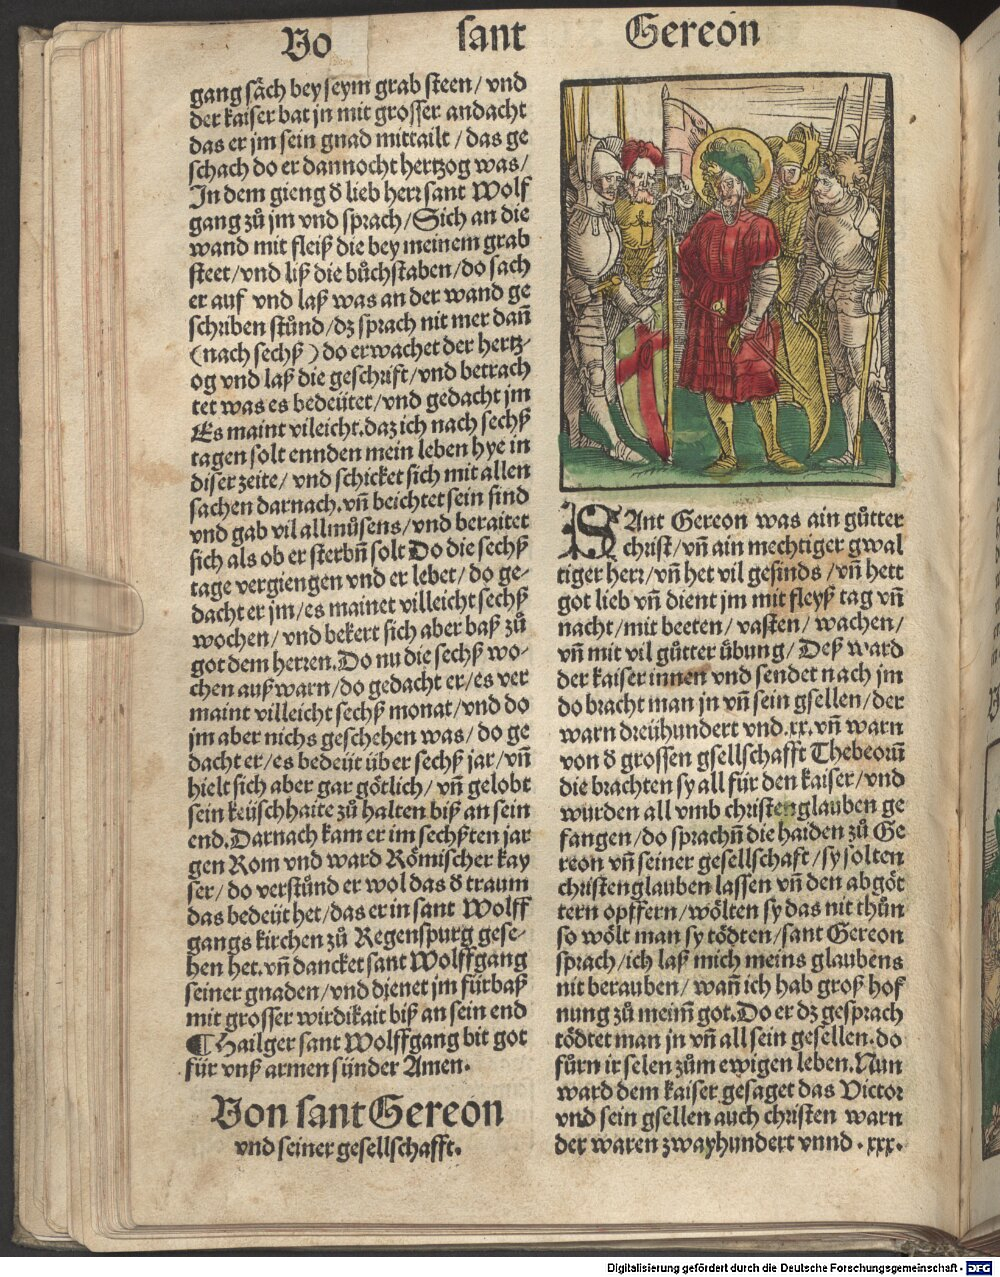 Vo sant Gereon
gang säch bey seym grab steen/ vnd
der kaiser bat jn mit grosser andacht
das er jm sein gnad mittailt/ das ge
schach do er dannocht hertzog was/
In dem gieng d̕ lieb herr sant Wolf
gang zů jm vnd sprach/ Sich an die
wand mit fleiß die bey meinem grab
steet/ vnd liß die bůchstaben/ do sach
er auf vnd laß was an der wand ge
schriben stůnd/ dz sprach nit mer dañ
(nach sechß) do erwachet der hertz-
og vnd laß die geschrift/ vnd betrach
tet was es bedeütet/ vnd gedacht jm
Es maint vileicht. daz ich nach sechß
tagen solt ennden mein leben hye in
diser zeite/ vnd schicket sich mit allen
sachen darnach. vñ beichtet sein sind
vnd gab vil allmůsens/ vnd beraitet
sich als ob er sterbñ solt Do die sechß
tage vergiengen vnd er lebet/ do ge-
dacht er jm/ es mainet villeicht sechß
wochen/ vnd bekert sich aber baß zů
got dem herren. Do nu die sechß wo-
chen auß warn/ do gedacht er/ es ver
maint villeicht sechß monat/ vnd do
jm aber nichs geschehen was/ do ge
dacht er/ es bedeüt über sechß jar/ vñ
hielt sich aber gar götlich/ vñ gelobt
sein keüschhaite zů halten biß an sein
end. Darnach kam er im sechßten jar
gen Rom vnd ward Römischer kay
ser/ do verstůnd er wol das d̕ traum
das bedeüt het/ das er in sant Wolff
gangs kirchen zů Regenspurg gese-
hen het. vñ dancket sant Wolffgang
seiner gnaden/ vnd dienet jm fürbaß
mit grosser wirdikait biß an sein end
¶ Hailger sant Wolffgang bit got
für vnß armen sünder Amen.
Von sant Gereon
vnd seiner gesellschafft.
SAnt Gereon was ain gůtter
christ/ vñ ain mechtiger gwal
tiger herr/ vñ het vil gesinds/ vñ hett
got lieb vñ dient jm mit fleyß tag vñ
nacht/ mit beeten/ vasten/ wachen/
vñ mit vil gůtter übung/ Deß ward
der kaiser innen vnd sendet nach jm
do bracht man jn vñ sein gsellen/ der
warn dreühundert vnd .xx. vñ warn
von d̕ grossen gsellschafft Thebeorū
die brachten sy all für den kaiser/ vnd
wurden all vmb christenglauben ge
fangen/ do sprachñ die haiden zů Ge
reon vñ seiner gesellschaft/ sy solten
christenglauben lassen vñ den abgöt
tern opffern/ wölten sy das nit thůn
so wölt man sy tödten/ sant Gereon
sprach/ ich laß mich meins glaubens
nit berauben/ wañ ich hab groß hof
nung zů meim̄ got. Do er dz gesprach
tödtet man jn vñ all sein gesellen. do
fůrn ir selen zům ewigen leben. Nun
ward dem kaiser gesaget das Victor
vnd sein gsellen auch christen warn
der waren zwayhundert vnnd .xxx.
Digitalisierung gefördert durch die Deutsche Forschungsgemeinschaft - DFG